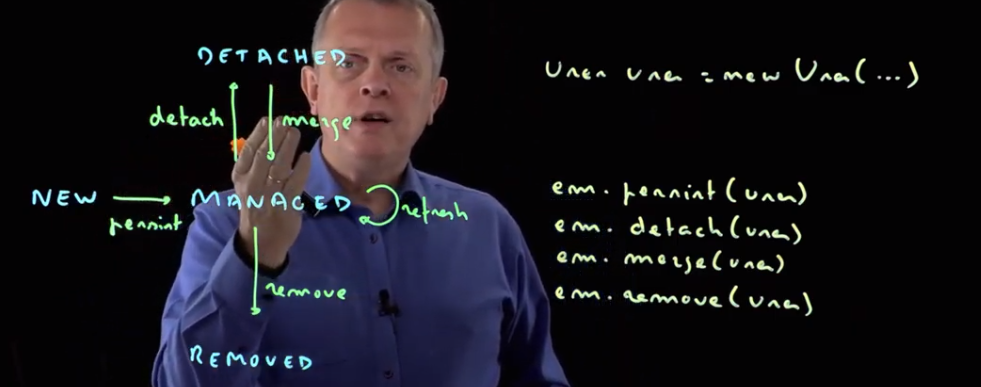 DETACHED
detach
merge
NEW
persist
MANAGED
refresh
remove
REMOVED
User user = new User(...)
em. persist(user)
em. detach(user)
em. merge(user)
em. remove(user)